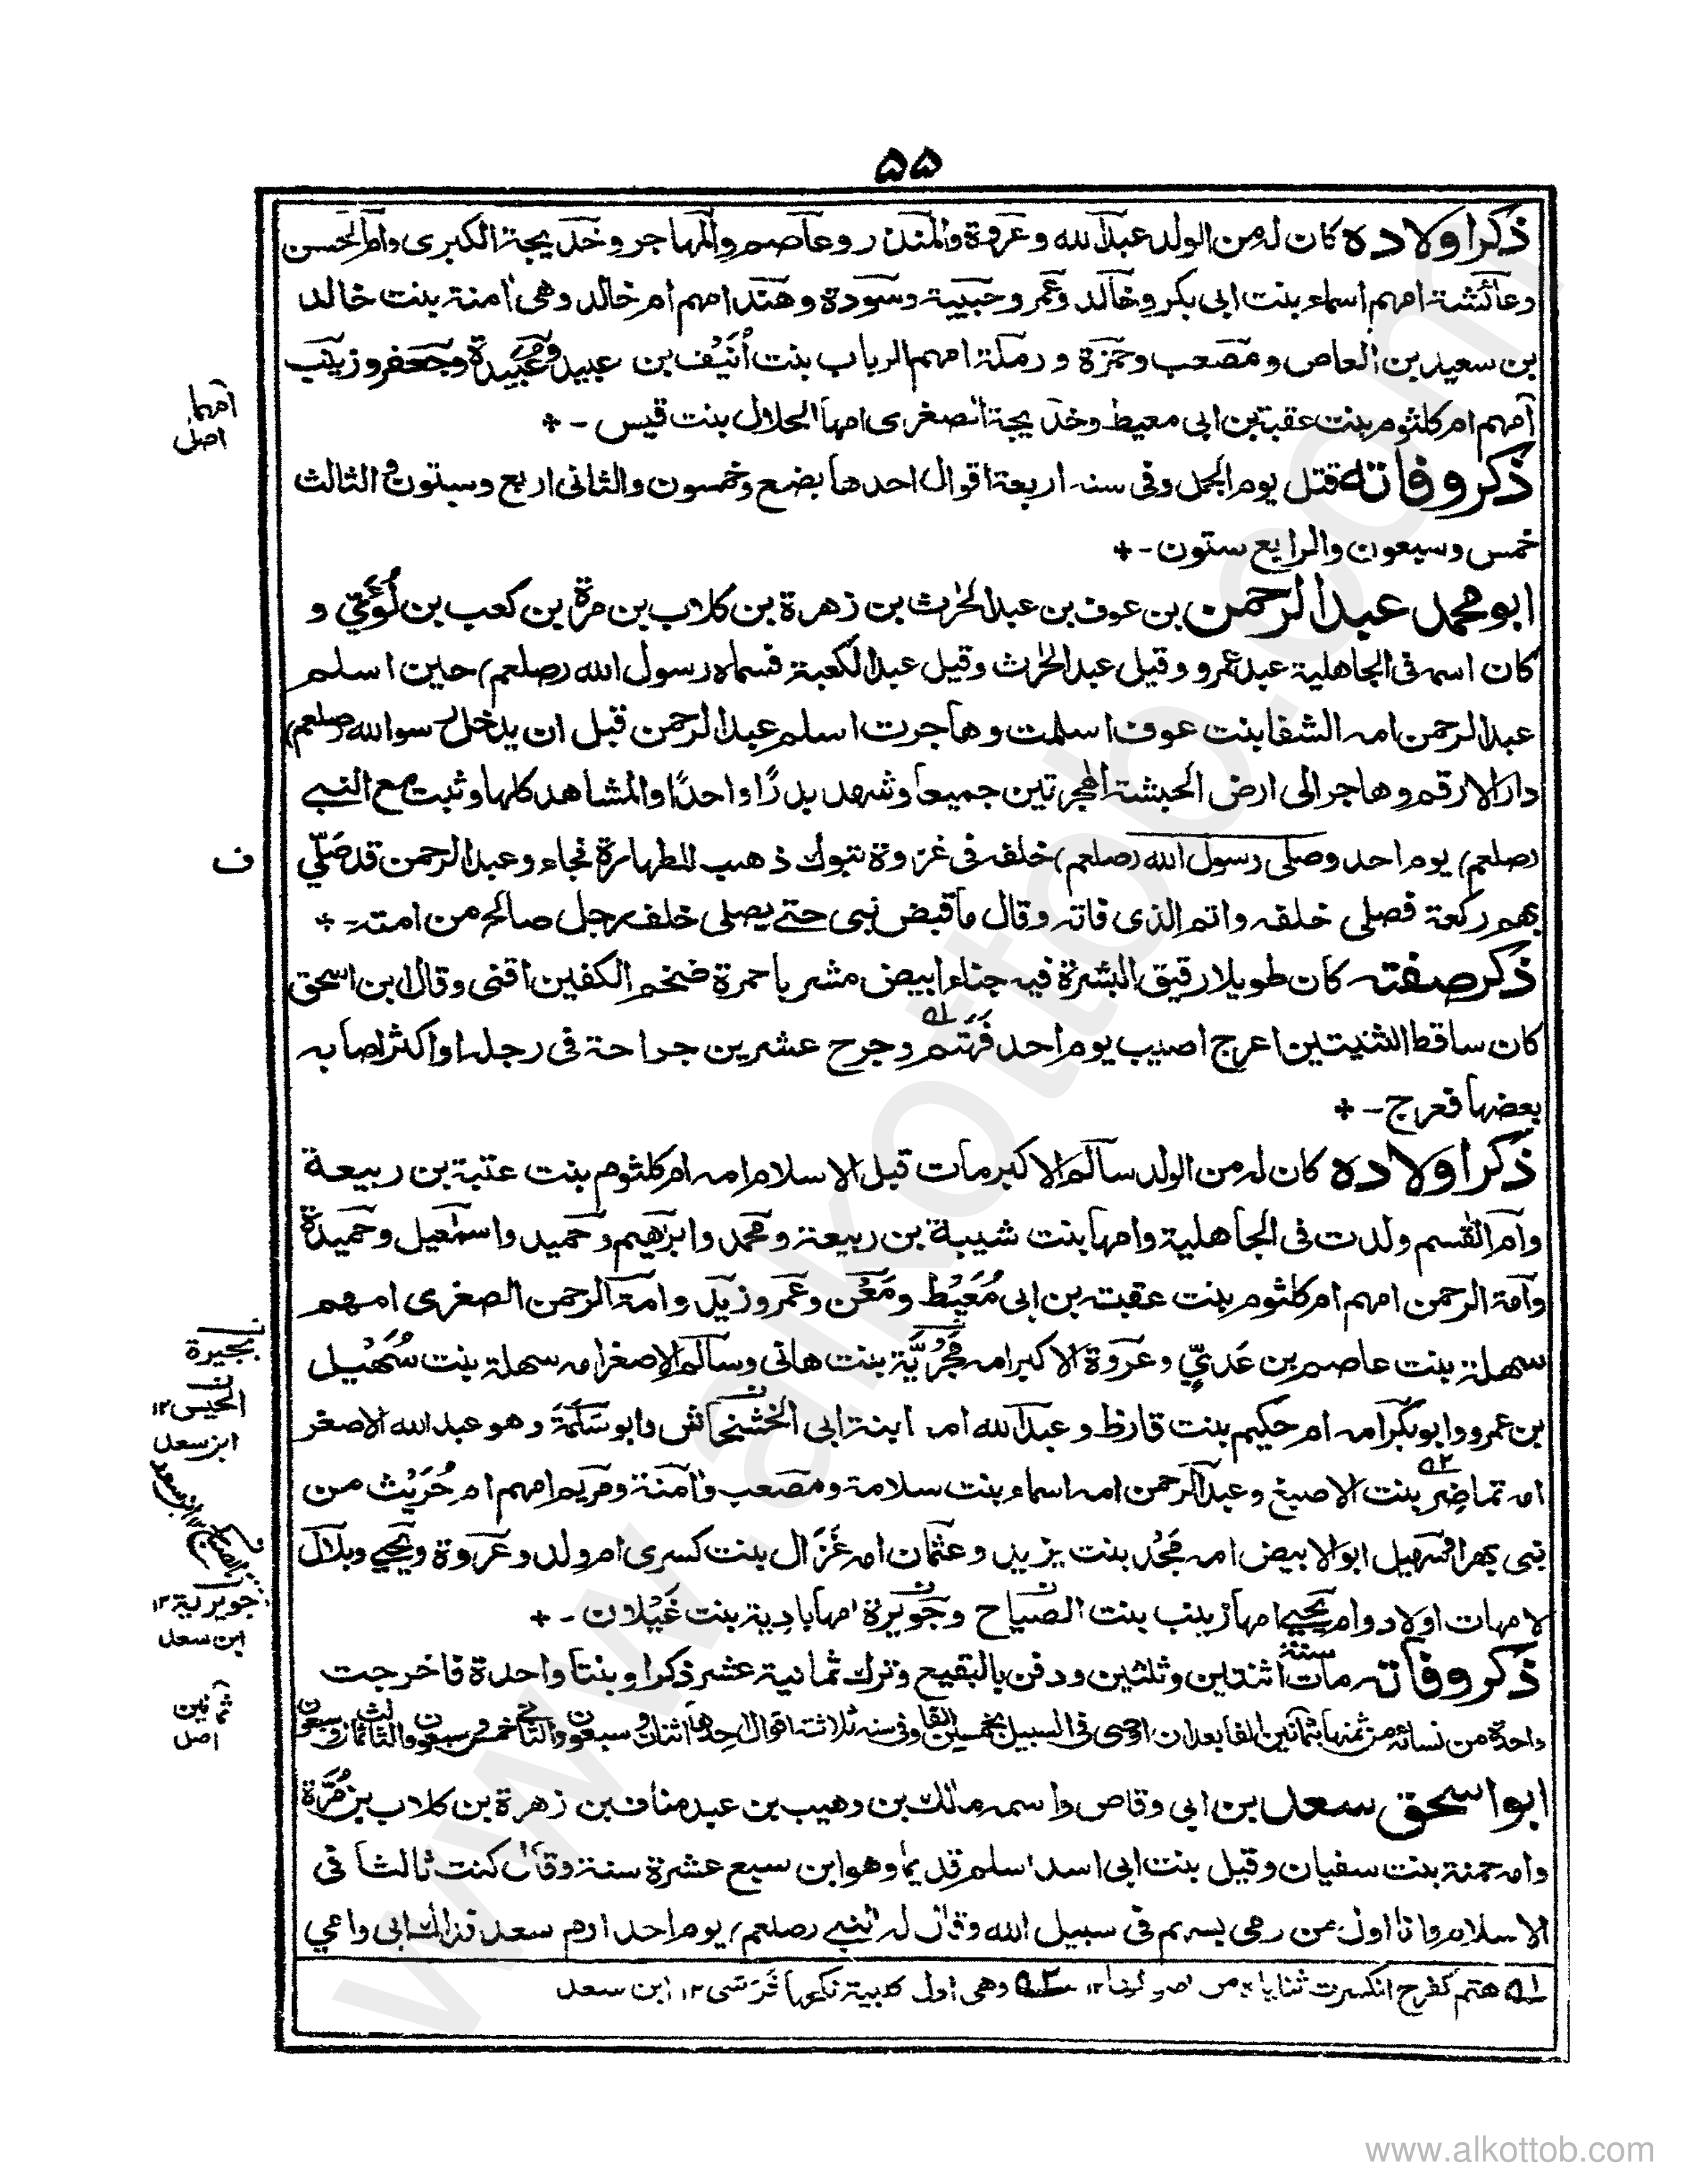 ۵۵
ذكر اولاده كان له من الولد عبد الله وعروة والمنذر وعاصم والمهاجر وخديجة الكبرى وام الحسن
وعائشة امهم اسماء بنت ابى بكر وخالد وعمر وحبيبة وسودة وهند امهم ام خالد وهى اٰمنة بنت خالد
بن سعيد بن العاص ومصعب وحمزة ورملة امهم الرباب بنت اُنَيُف بن عبيد وعُبَيدة وجعفر وزينب
امهم ام كلثوم بنت عقبة بن ابى معيط وخديجة الصغرى امها الحلال بنت قيس -+
ذكر وفاته قتل يوم الجمل وفى سنه اربعة اقوال احدها بضع وخمسون والثانى اربع وستون والثالث
خمس وسبعون والرابع ستون -+
ابو محمد عبد الرحمن بن عوف بن عبد الحٰرث بن زهرة بن كلاب بن مرة بن كعب بن لُؤَيّ و
كان اسمه فى الجاهلية عبد عمرو وقيل عبد الحٰرث وقيل عبد الكعبة فسماه رسول الله (صلعم) حين اسلم
عبد الرحمن امه الشفا بنت عوف اسلمت وهاجرت اسلم عبد الرحمن قبل ان يدخل رسوالله (صلعم)
دار الارقم وهاجر الى ارض الحبشة الهجرتين جميعا وشهد بدرًا واحدًا والمشاهد كلها وثبت مع النبى
(صلعم) يوم احد وصلى رسول الله (صلعم) خلفه فى غزوة تبوك ذهب للطهارة فجاء وعبد الرحمن قد صَلّي
بهم ركعة فصلى خلفه واتم الذى فاته وقال ما قبض نبى حتے يصلى خلف رجل صالح من امته -+
ذكر صفته كان طويلا رقيق البشرة فيه جناء ابيض مشربا حمرة ضخم الكفين اقنى وقال ابن اسحق
كان ساقط الثنيتين اعرج اصيب يوم احد فَهَتَم وجرح عشرين جراحة فى رجله او اكثر اصابه
بعضها فعرج -+
ذكر اولاده كان له من الولد سالم الاكبر مات قبل الاسلام امه ام كلثوم بنت عتبة بن ربيعة
وام القٰسم ولدت فى الجاهلية وامها بنت شيبة بن ربيعة ومحمد وابرٰهيم وحميد واسمٰعيل وحميدة
وامة الرحمن امهم ام كلثوم بنت عقبة بن ابى مُعَيُط ومَعْن وعمر وزيد وامة الرحمن الصغرى امهم
سهلة بنت عاصم بن عَديّ وعروة الاكبر امه بنت هانى وسالم الاصغر امه سهلة بنت سُهَيْل
بن عمرو وابو بكر امه ام حكيم بنت قارظ وعبد الله امه ابنة ابى الخشخاش وابو سَلَمَة وهو عبد الله الاصغر
امه تماضِر بنت الاصبغ وعبد الرحمن امه اسماء بنت سلامة ومصعب واٰمنة ومريم امهم ام حُرَيْث من
نبى بهرا فسهيل ابو الابيض امه مَجُد بنت يزيد وعثمان امه غَزَال بنت كسرى ام ولد وعروة ويحيے وبلال
لامهات اولاد وام يحيے امها زينب بنت الصباح وجويرة امها بادية بنت غَيْلان -+
ذكر وفاته مات سنة اثنتين وثلثين ودفن بالبقيع وترك ثمانية عشر ذكرا وبنتا واحدة فاخرجت
واحدة من نسائه من ثمنها بثمانين الفا بعد ان اوصى فى السبيل بخمسين الفا وفى سنه ثلاثة اقوال احدها اثنان وسبعون والثانى خمس وسبعون والثالث ثمان وسبعون
ابو اسحق سعد بن ابى وقاص واسمه مالك بن وهيب بن عبد مناف بن زهرة بن كلاب بن مُرَّة
وامه حمنة بنت سفيان وقيل بنت ابى اسد اسلم قديما وهو ابن سبع عشرة سنة وقال كنت ثالثا فى
الاسلام وانا اول من رمى بسهم فى سبيل الله وقال له النبے (صلعم) يوم احد ارم سعد فداك ابى وامي
۱ هتم كفرح انكسرت ثناياه من اصولها ۱۲ ۲ وهى اول كلبية نكحها قرشى ۱۲ ابن سعد
امهما
اصل
ف
بجيرة
الحيس ۱۲
ابن سعد
جويرية ۱۲
ابن سعد
ثمانين
اصل
www.alkottob.com
www.alkottob.com